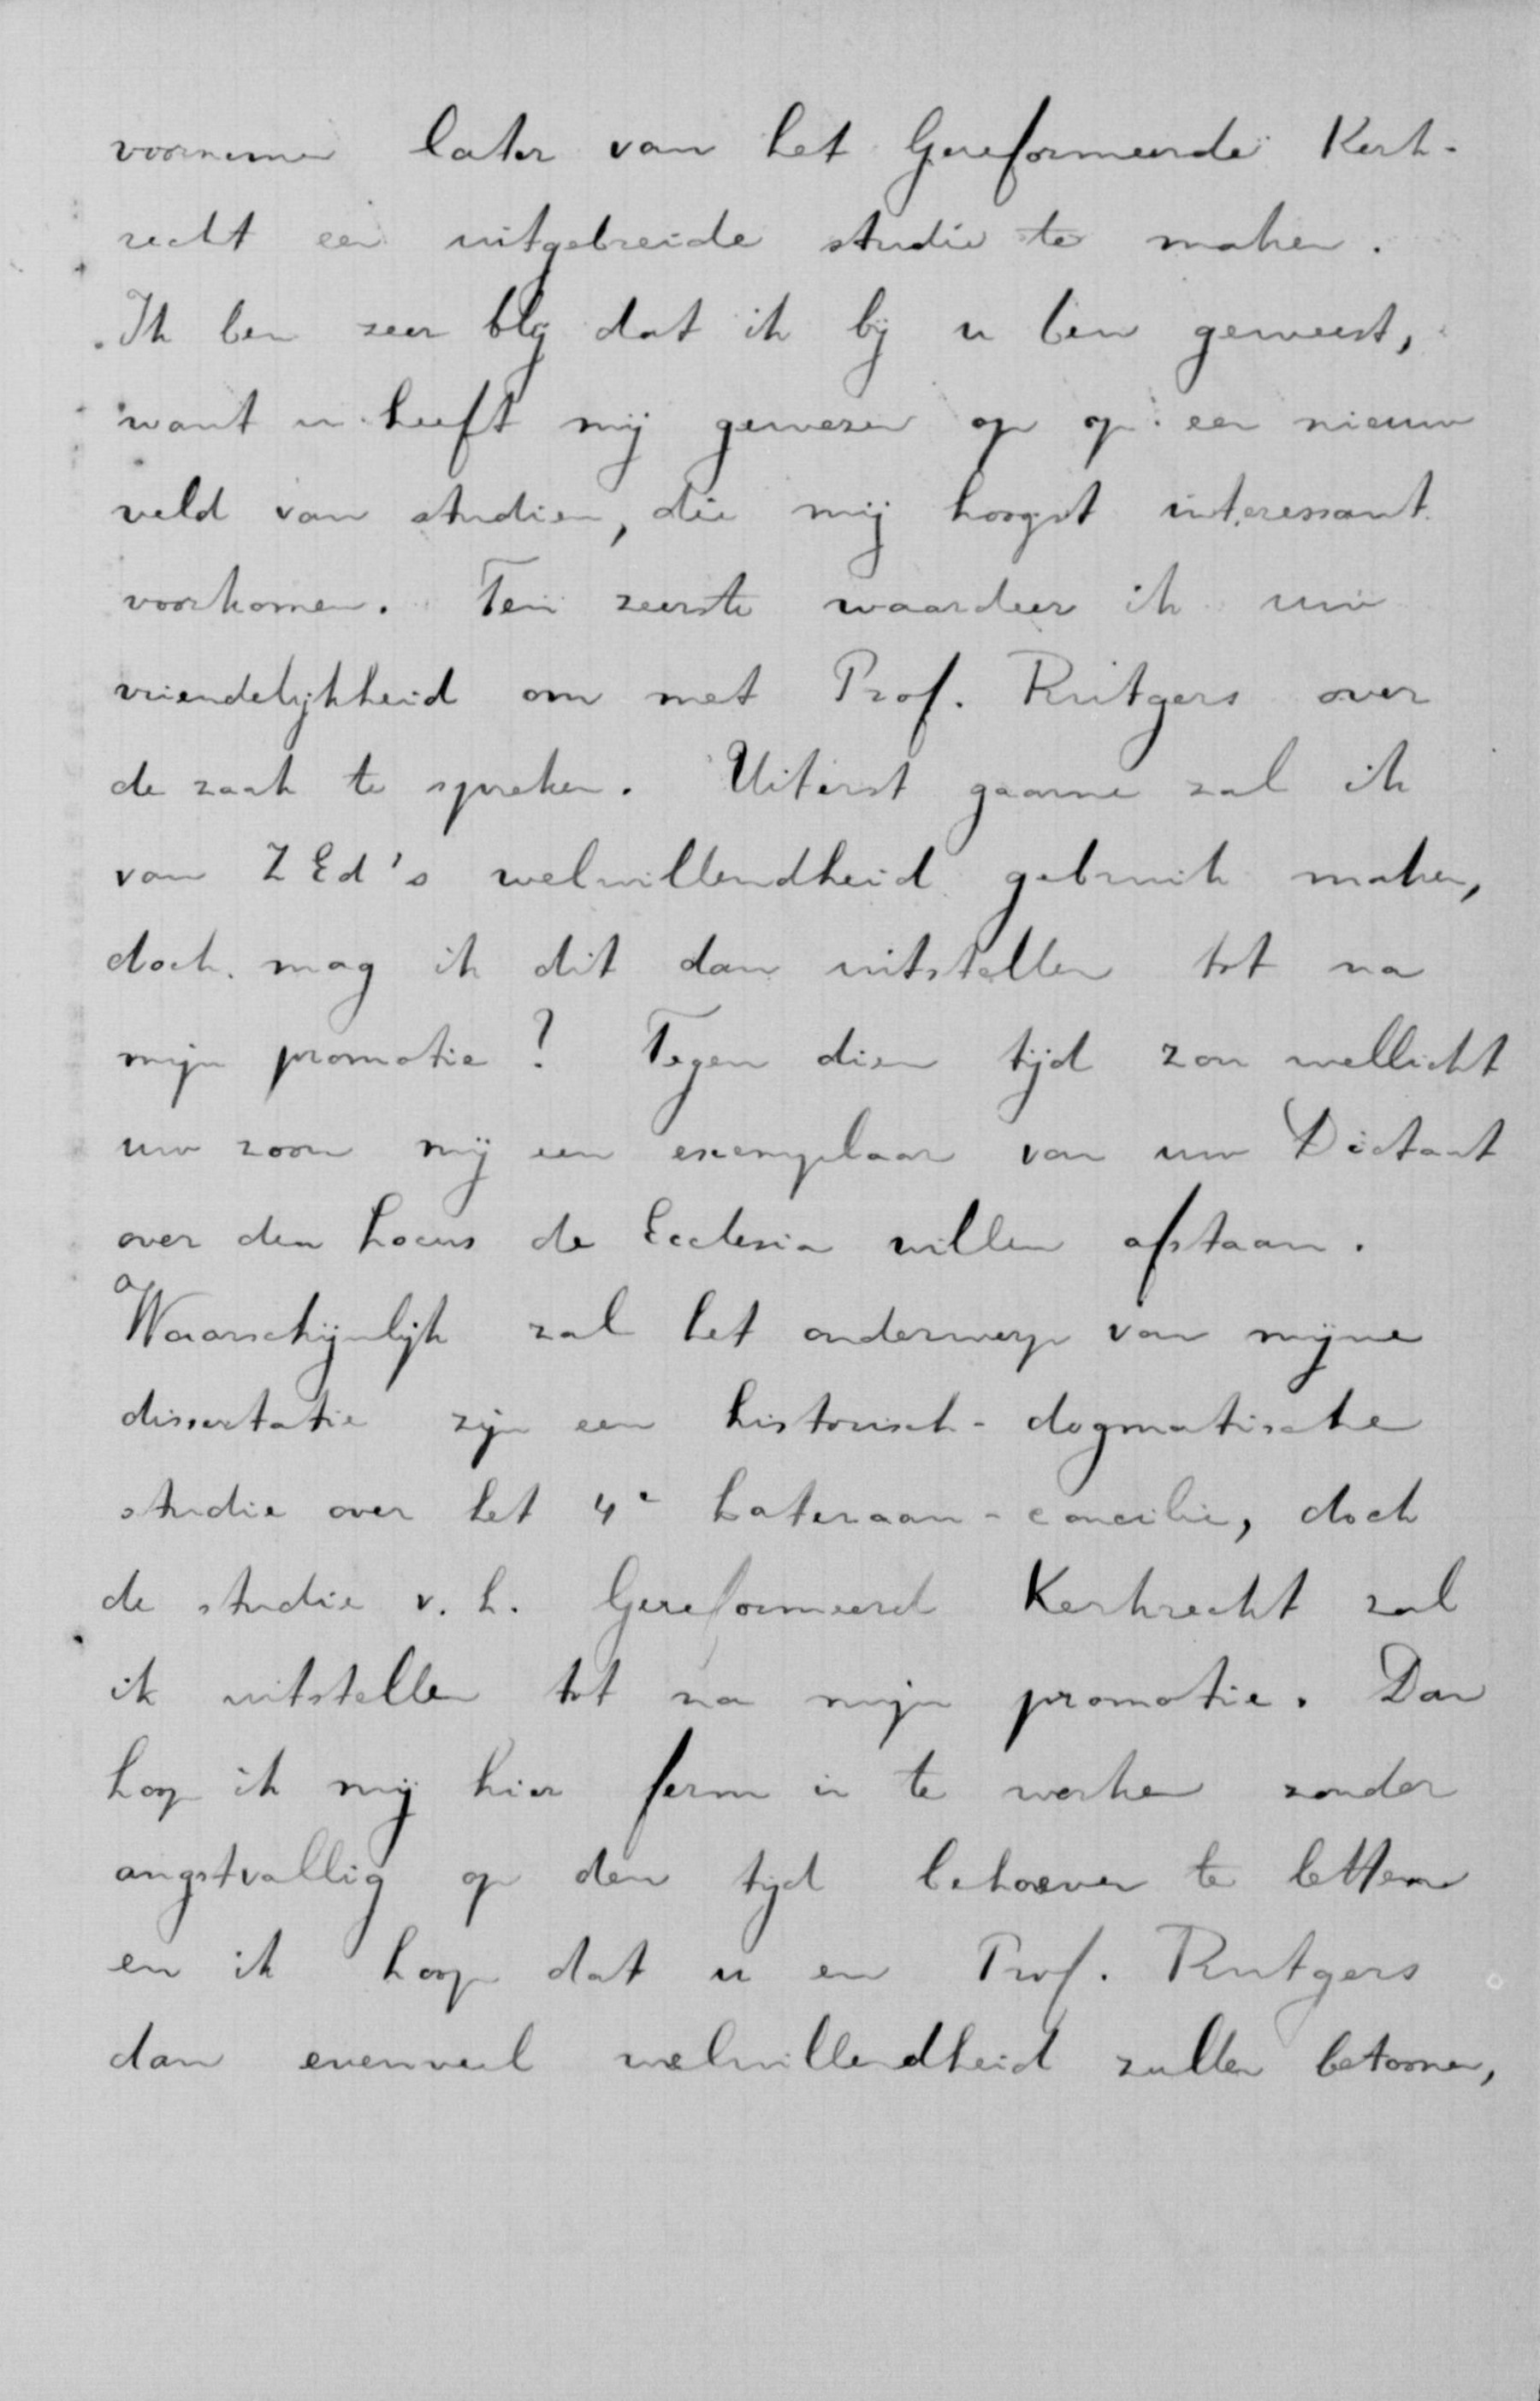 voornemen later van het Gereformeerde Kerk-
recht een uitgebreide studie te maken.
Ik ben zeer blij dat ik bij u ben geweest,
want u heeft mij gewezen op op een nieuw
veld van studien, die mij hoogst interessant
voorkomen. Ten zeerste waardeer ik uw
vriendelijkheid om met Prof. Rutgers over
de zaak te spreken. Uiterst gaarne zal ik
van Z Ed's welwillendheid gebruik maken,
doch mag ik dit dan uitstellen tot na
mijn promotie? Tegen dien tijd zou wellicht
uw zoon mij een exemplaar van uw Dictaat
over den Locus de Ecclesia willen afstaan.
Waarschijnlijk zal het onderwerp van mijne
dissertatie zijn een historisch-dogmatische
studie over het 4e Lateraan-concilie, doch
de studie v. h. Gereformeerd Kerkrecht zal
ik uitstellen tot na mijn promotie. Dan
hoop ik mij hier ferm in te werken zonder
angstvallig op den tijd behoeven te letten
en ik hoop dat u en Prof. Rutgers
dan evenveel welwillendheid zullen betoonen,